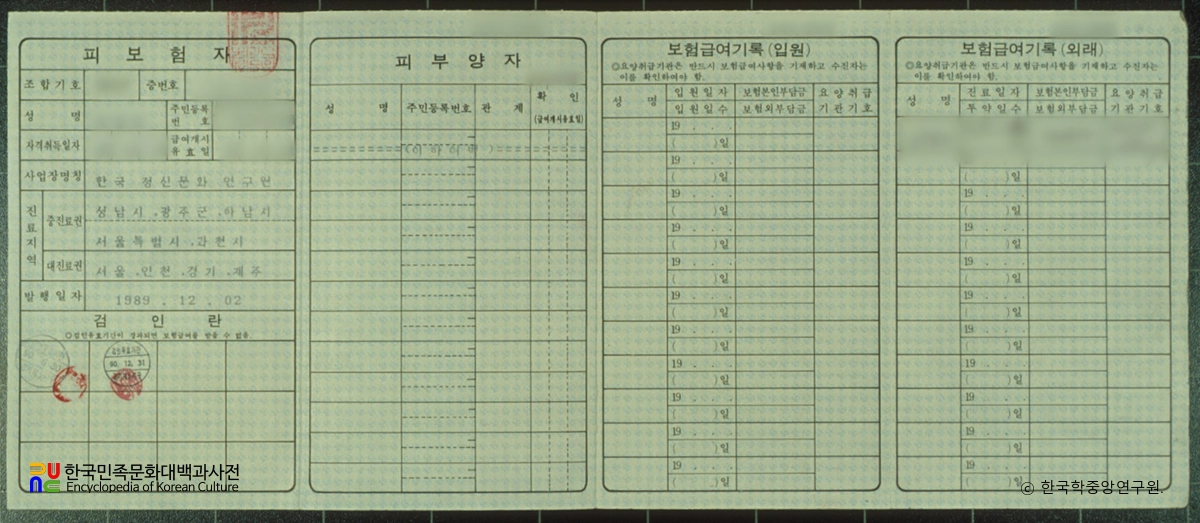 피 보 험 자
조 합 기 호
증번호
성 명
주민등록 번 호
자격취득일자
급여개시 유 효 일
사업장명칭 한국 정신문화 연구원
진료지역
중진료권 성남시 .광주군 .하남시
서울특별시 .과천시
대진료권 서울 .인천 .경기 .제주
발 행 일 자 1989 . 12 . 02
검 인 란
◎검인유효기간이 경과되면 보험급여를 받을 수 없음.
검인유효기간
90. 12. 31
피 부 양 자
성 명 주민등록번호 관 계 확 인
(급여개시유효일)
(이 하 여 백)
보험급여기록(입원)
◎요양취급기관은 반드시 보험급여사항을 기재하고 수진자는
이를 확인하여야 함.
성 명 입 원 일 자 보험본인부담금 요 양 취 급
입 원 일 수 보험외부담금 기 관 기 호
19 . . .
( )일
19 . . .
( )일
19 . . .
( )일
19 . . .
( )일
19 . . .
( )일
19 . . .
( )일
19 . . .
( )일
19 . . .
( )일
19 . . .
( )일
19 . . .
( )일
19 . . .
( )일
보험급여기록(외래)
◎요양취급기관은 반드시 보험급여사항을 기재하고 수진자는
이를 확인하여야 함.
성 명 진 료 일 자 보험본인부담금 요 양 취 급
투 약 일 수 보험외부담금 기 관 기 호
( )일
19 . . .
( )일
19 . . .
( )일
19 . . .
( )일
19 . . .
( )일
19 . . .
( )일
19 . . .
( )일
19 . . .
( )일
19 . . .
( )일
19 . . .
( )일
한국민족문화대백과사전
Encyclopedia of Korean Culture
© 한국학중앙연구원.